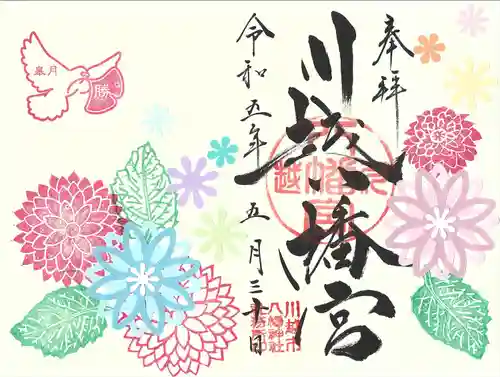 奉拝
川越八幡宮
令和五年五月三十日
皐月
勝
川越市
八幡神社